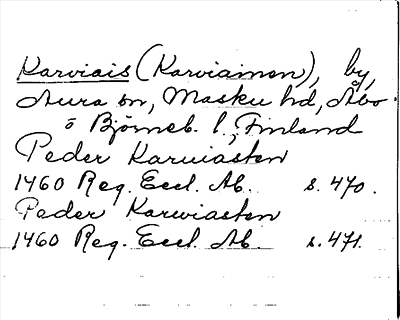 Karviais (Karviainen), by,
Aura sn, Masku hd, Åbo
o Björneb. l., Finland
Peder Karuiasten
1460 Reg. Eccl. Ab. s. 470.
Peder Karwiasten
1460 Reg. Eccl. Ab. s. 471.